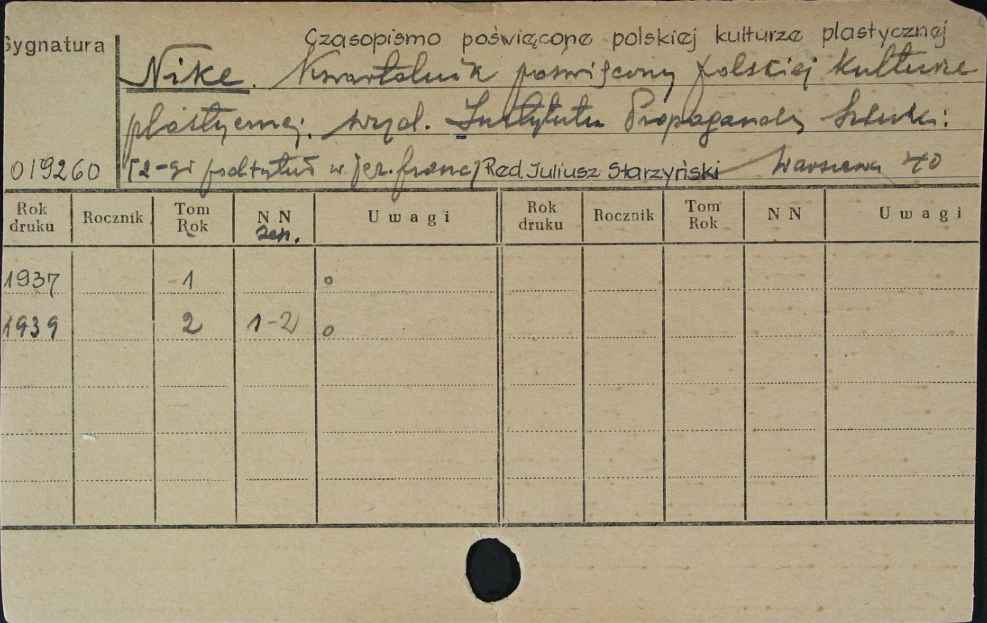 Sygnatura
Czasopismo poświęcone polskiej kulturze plastycznej
Nike. Kwartalnik poświęcony polskiej kulturze
plastycznej. wyd. Instytutu Propagandy Sztuki:
019260 [2-gi podtytuł w jęz. franc] Red. Juliusz Starzyński Warszawa 40
Rok druku Rocznik Tom Rok N N Zesz. Uwagi Rok druku Rocznik Tom Rok N N Uwagi
1937 1 o
1939 2 1-2 o